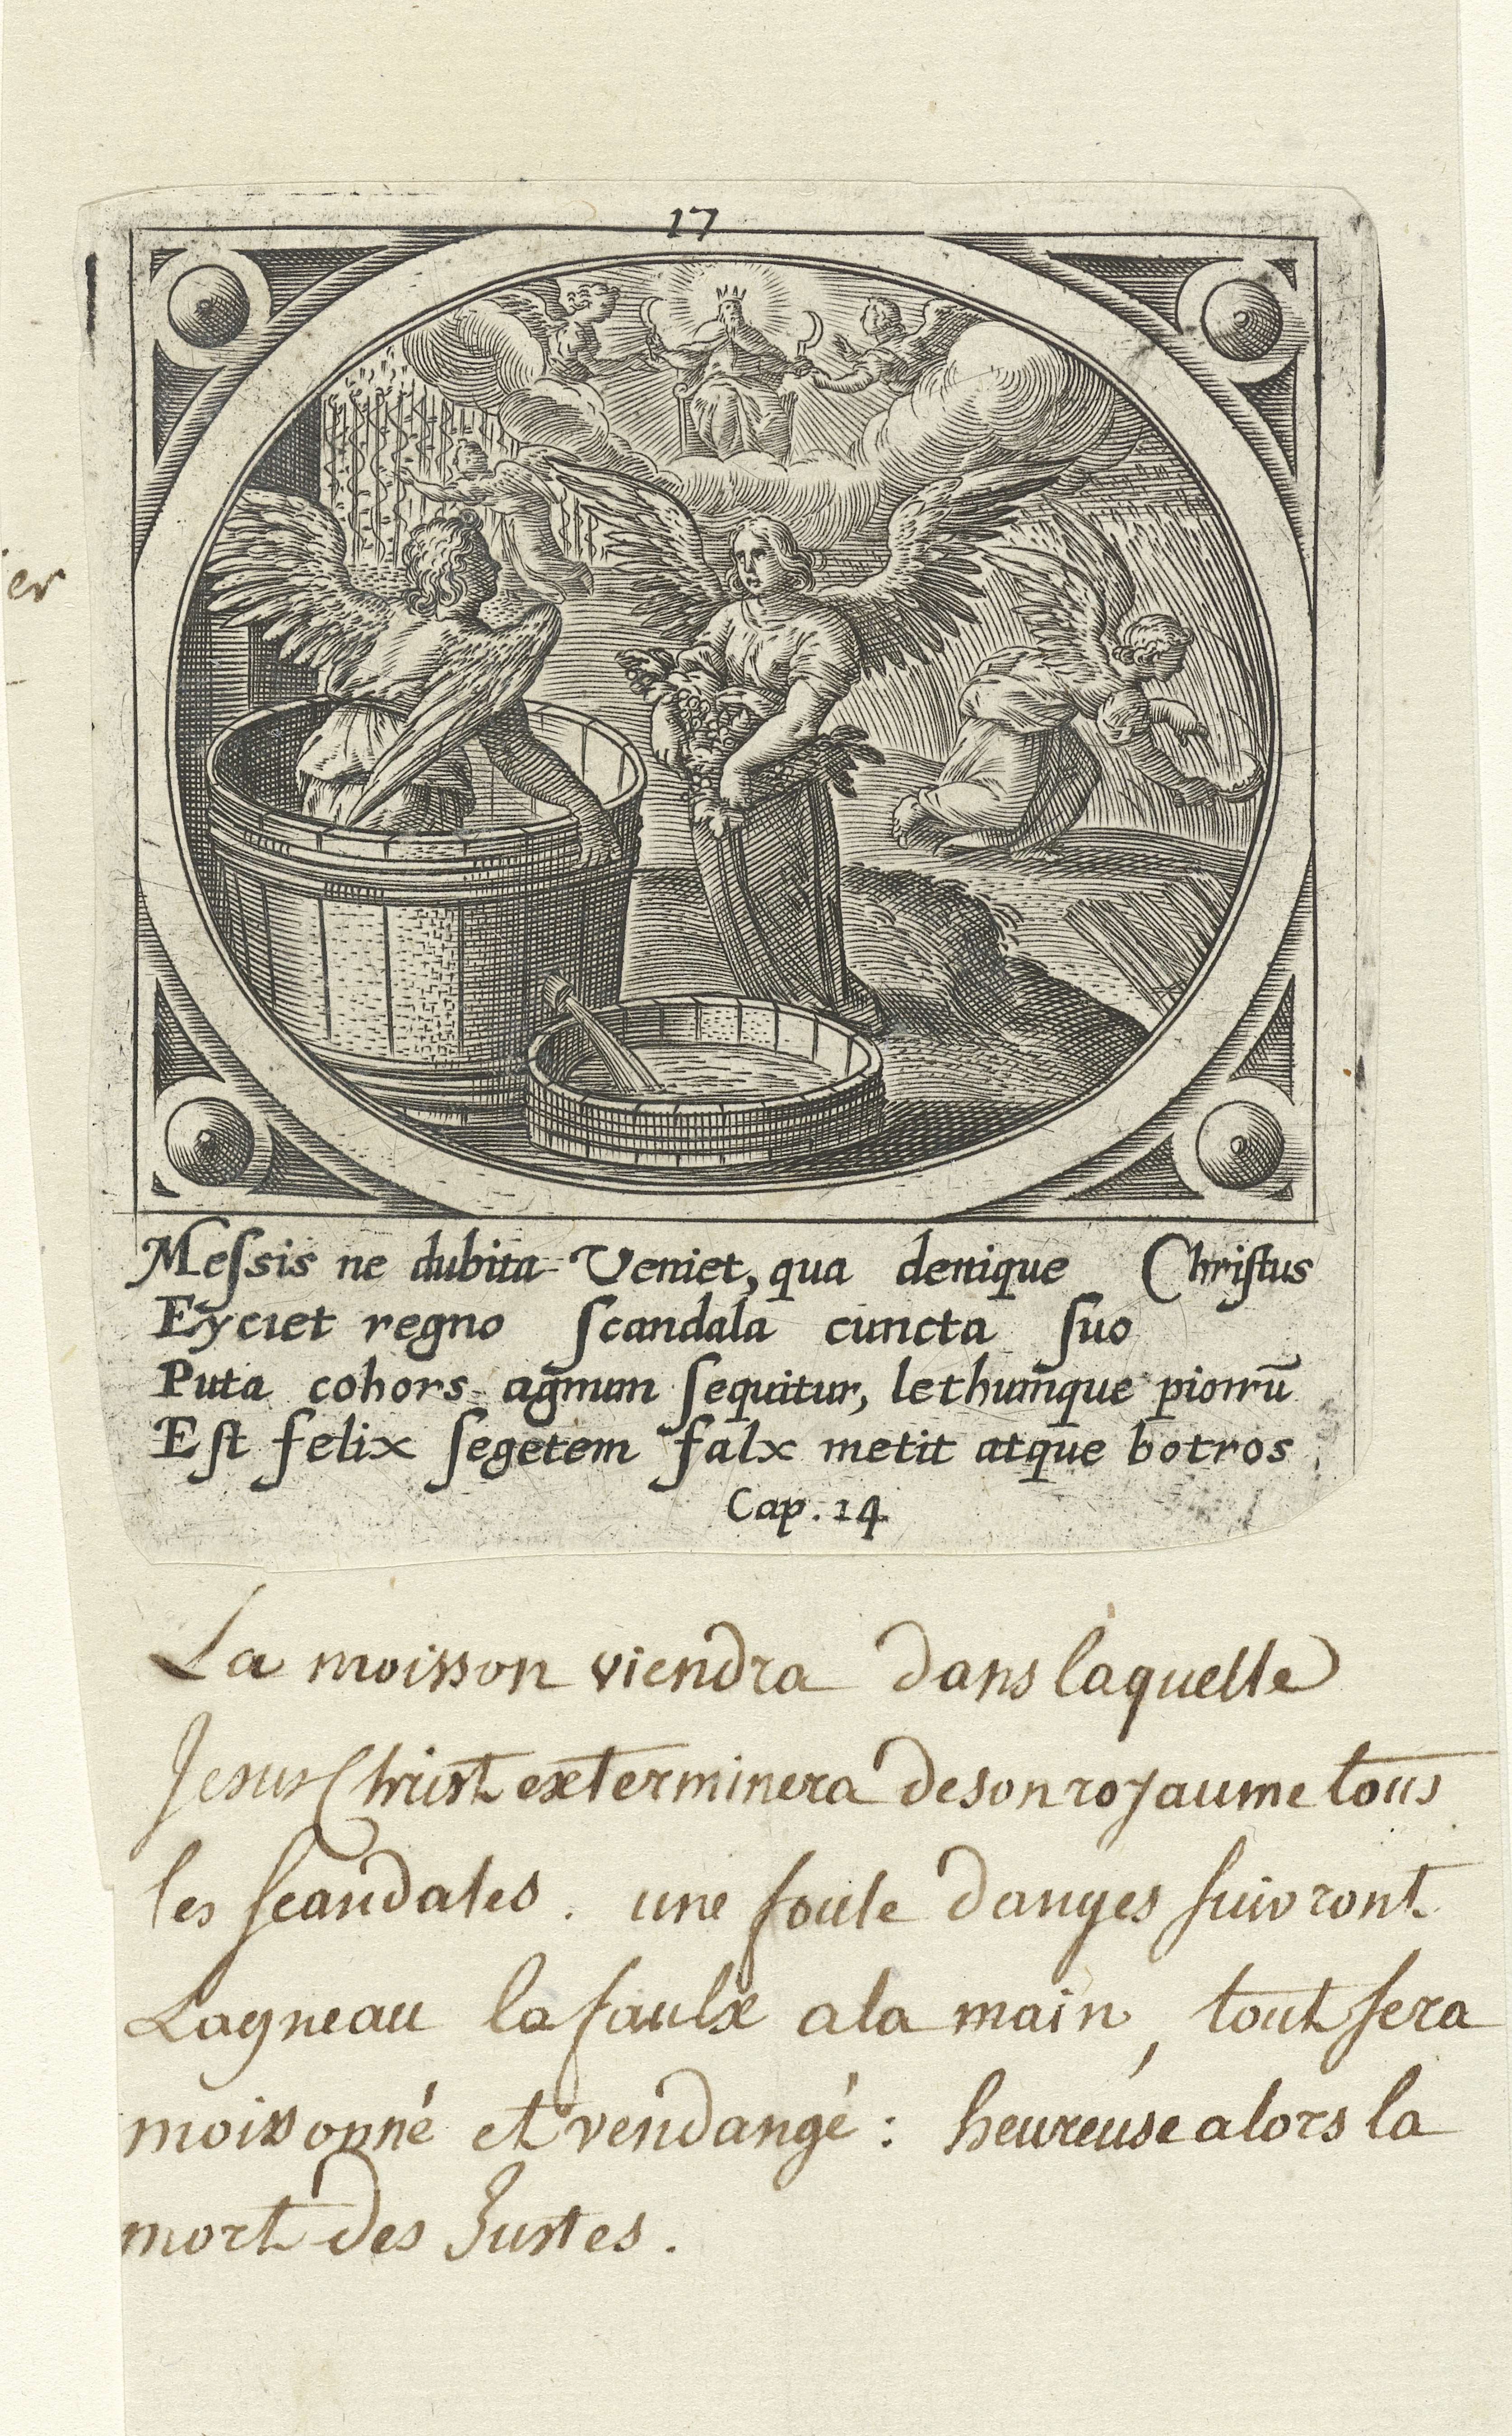 17
er
Meſsis ne dubita Veniet, qua denique Chriſtus
Eyciet regno ſcandala cuncta ſuo
Puta cohors agnum ſequitur, lethumque piorrū
Eſt felix ſegetem falx metit atque botros
Cap. 14
La moisson viendra dans laquelle
Jesus Christ exterminera de son royaume tous
les scandales. une foule danges suivront
Lagneau la faulx a la main, tout sera
moissonné et vendangé : heureuse alors la
mort des Justes.